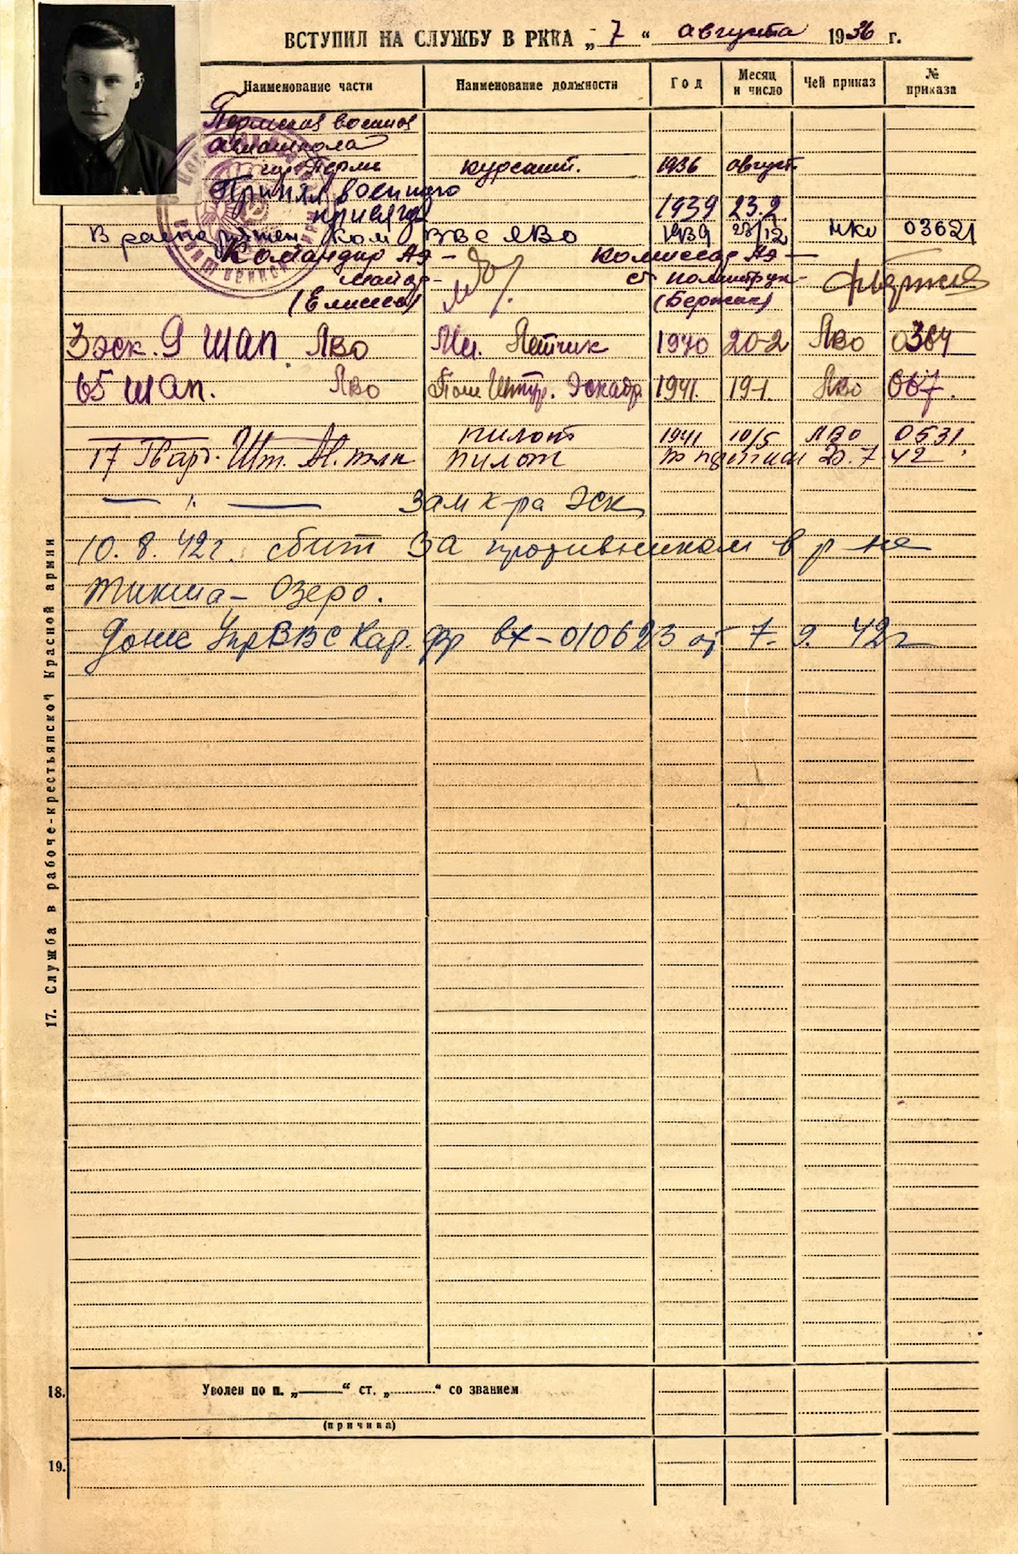 ВСТУПИЛ НА СЛУЖБУ В РККА „ 7 “ августа 1936 г.
Наименование части Наименование должности Год Месяц и число Чей приказ № приказа
Пермская военная
авиашкола
гор. Пермь курсант. 1936 август
Принял военную
присягу 1939 23.2
В распоряжен. ком ВВС ЛВО 1939 23/12 НКО 03621
Командир АЭ – Комиссар АЭ –
майор – ст политрук –
(Елисеев) (Бержак)
3 эск. 9 ШАП ЛВО Мл. Летчик 1940 20-2 ЛВО 0364
65 шап. ЛВО Пом Штур. Эскадр. 1941. 19-1. ЛВО 067.
пилот 1941 10/5 ЛВО 0531.
17 Гвар. Шт. Ав. полк пилот 20.7 42
— " — зам к-ра Эск
10.8.42г. сбит ЗА противником в р-не
Тикша – Озеро.
Донес УпрВВС Кар. фр вх – 010623 от 7.9.42г
17. Служба в рабоче-крестьянской Красной армии
18. Уволен по п. „ “ ст. „ “ со званием
(причина)
19.